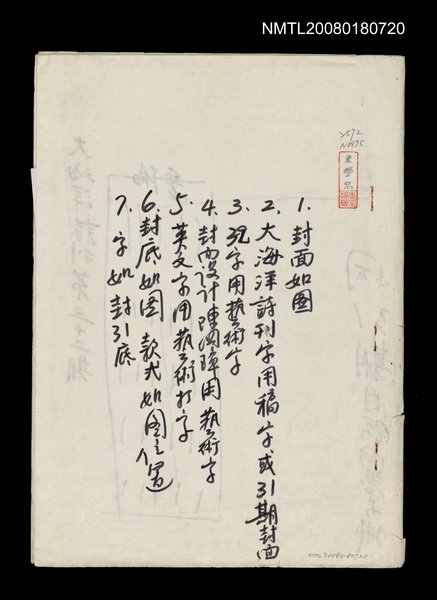 NMTL20080180720
2572
N0875
朱學恕
1. 封面如图
2. 大海洋詩刊字用稿字或31期封面
3. 現字用藝術字
4. 封面設計陳國璋用藝術字
5. 英文字用藝術打字
6. 封底如图 款式如图位置
7. 字如封31底
大海洋詩刊第三十二期
NMTL20080180720